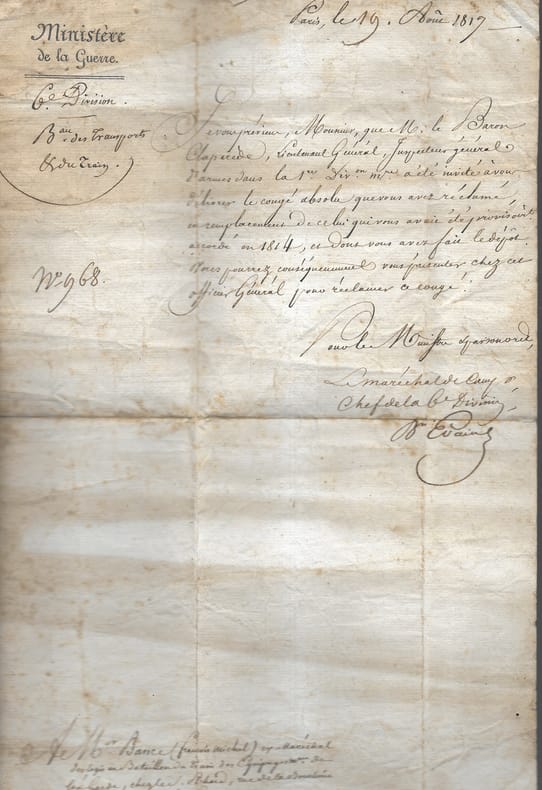 Paris, le 19. Août 1817
Ministère
de la Guerre.
6e. Division.
Bau. des Transports
& du Train.
Je vous préviens, Monsieur, que M. le Baron
Claparède, Lieutenant Général, Inspecteur général
d'armes dans la 1re. Divon. mre. a été invité à vous
délivrer le congé absolu que vous avez réclamé,
en remplacement de celui qui vous avait été provisoirt.
accordé en 1814, et dont vous avez fait le dépôt.
Vous pourrez conséquemment vous présenter chez cet
officier Général pour réclamer ce congé.
No. 968.
Pour le Ministre & par son ordre,
Le maréchal de Camp
Chef de la 6e. Division,
Bon. Evain
A Mr. Bance (françois michel) ex-maréchal
des logis au Bataillon du train des Équipages
la Garde, chez le Sr. rue de la